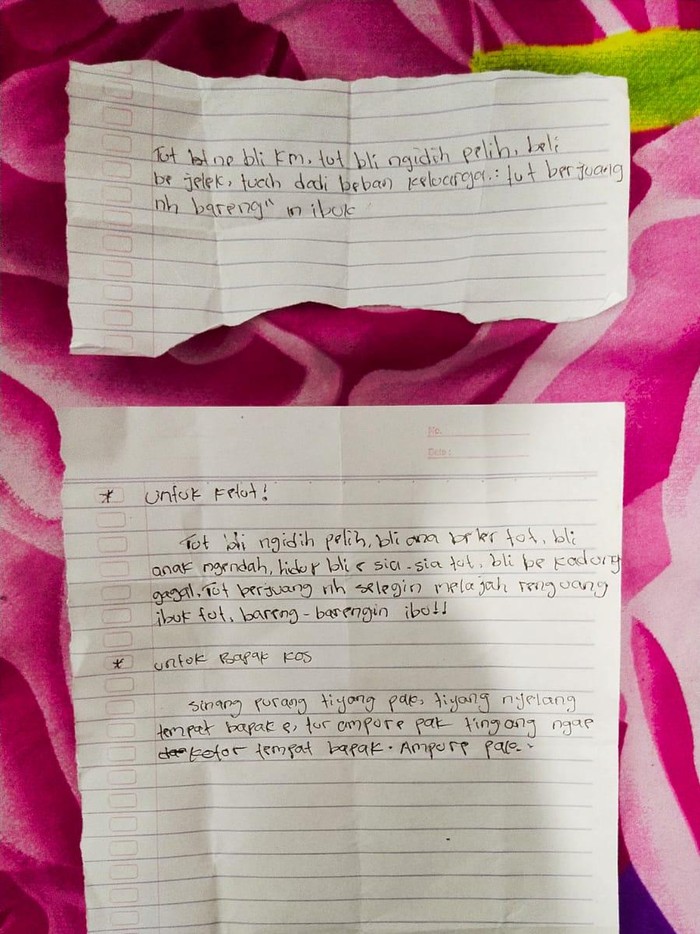 Tut ne bli km, tut bli ngidih pelih, beli
be jelek, tuah dadi beban keluarga.: tut berjuang
nh bareng" in ibuk
No.
Date:
* Untuk Ketut!
Tut bli ngidih pelih, bli ana tut, bli
anak ngendah, hidup bli e sia-sia tut, bli be kadung
gagal, Tut berjuang nh selegin melajah
ibuk tut, bareng-barengin ibu!!
* Untuk Bapak Kos
tiyang pak, tiyang nyelang
tempat bapak e, tur ampure pak
ketor tempat bapak. Ampure pak.